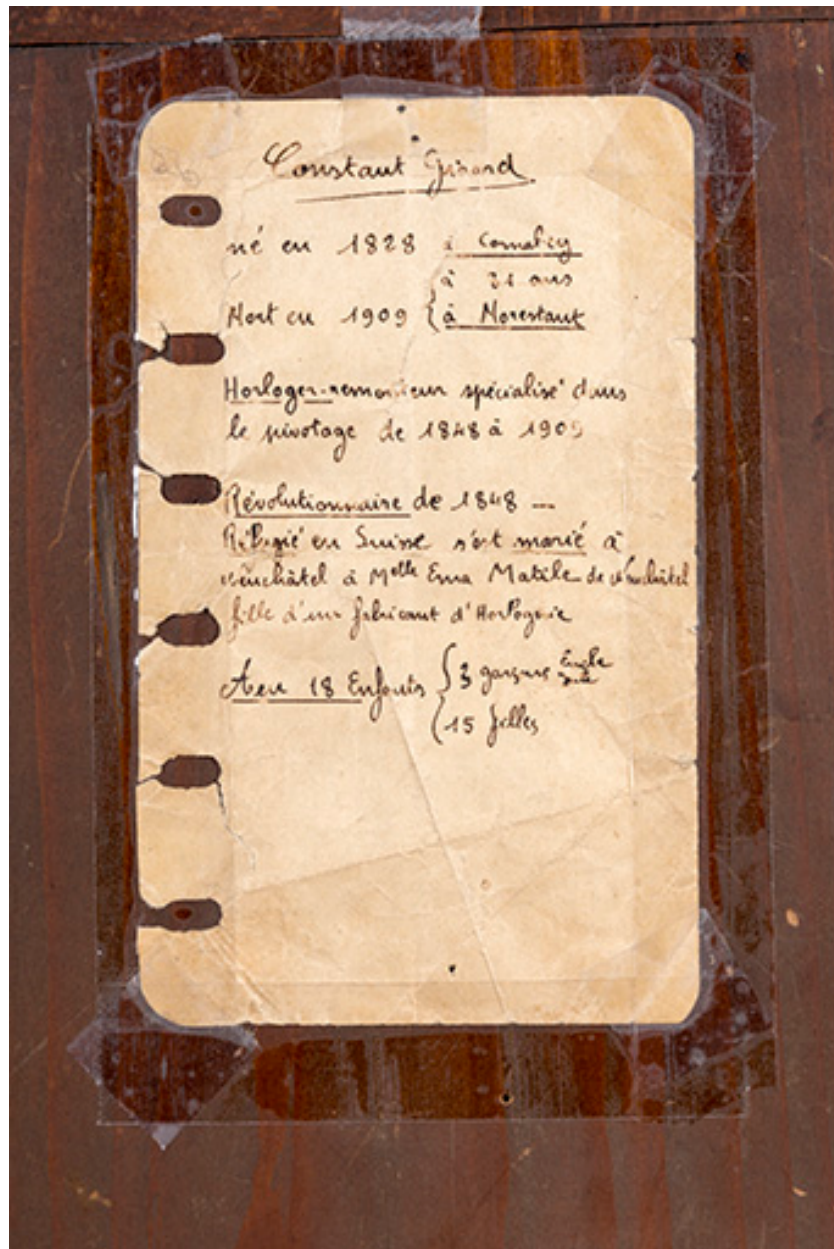 Constant Girard
né en 1828 à
à 81 ans
Mort en 1909 à Morestant
Horloger-remonteur spécialisé dans
le pivotage de 1848 à 1909
Révolutionnaire de 1848 —
Réfugié en Suisse s'est marié à
Neuchâtel à Melle Ema Matile de Neuchâtel
fille d'un fabricant d'Horlogerie
A eu 18 Enfants 3 garçons
15 filles